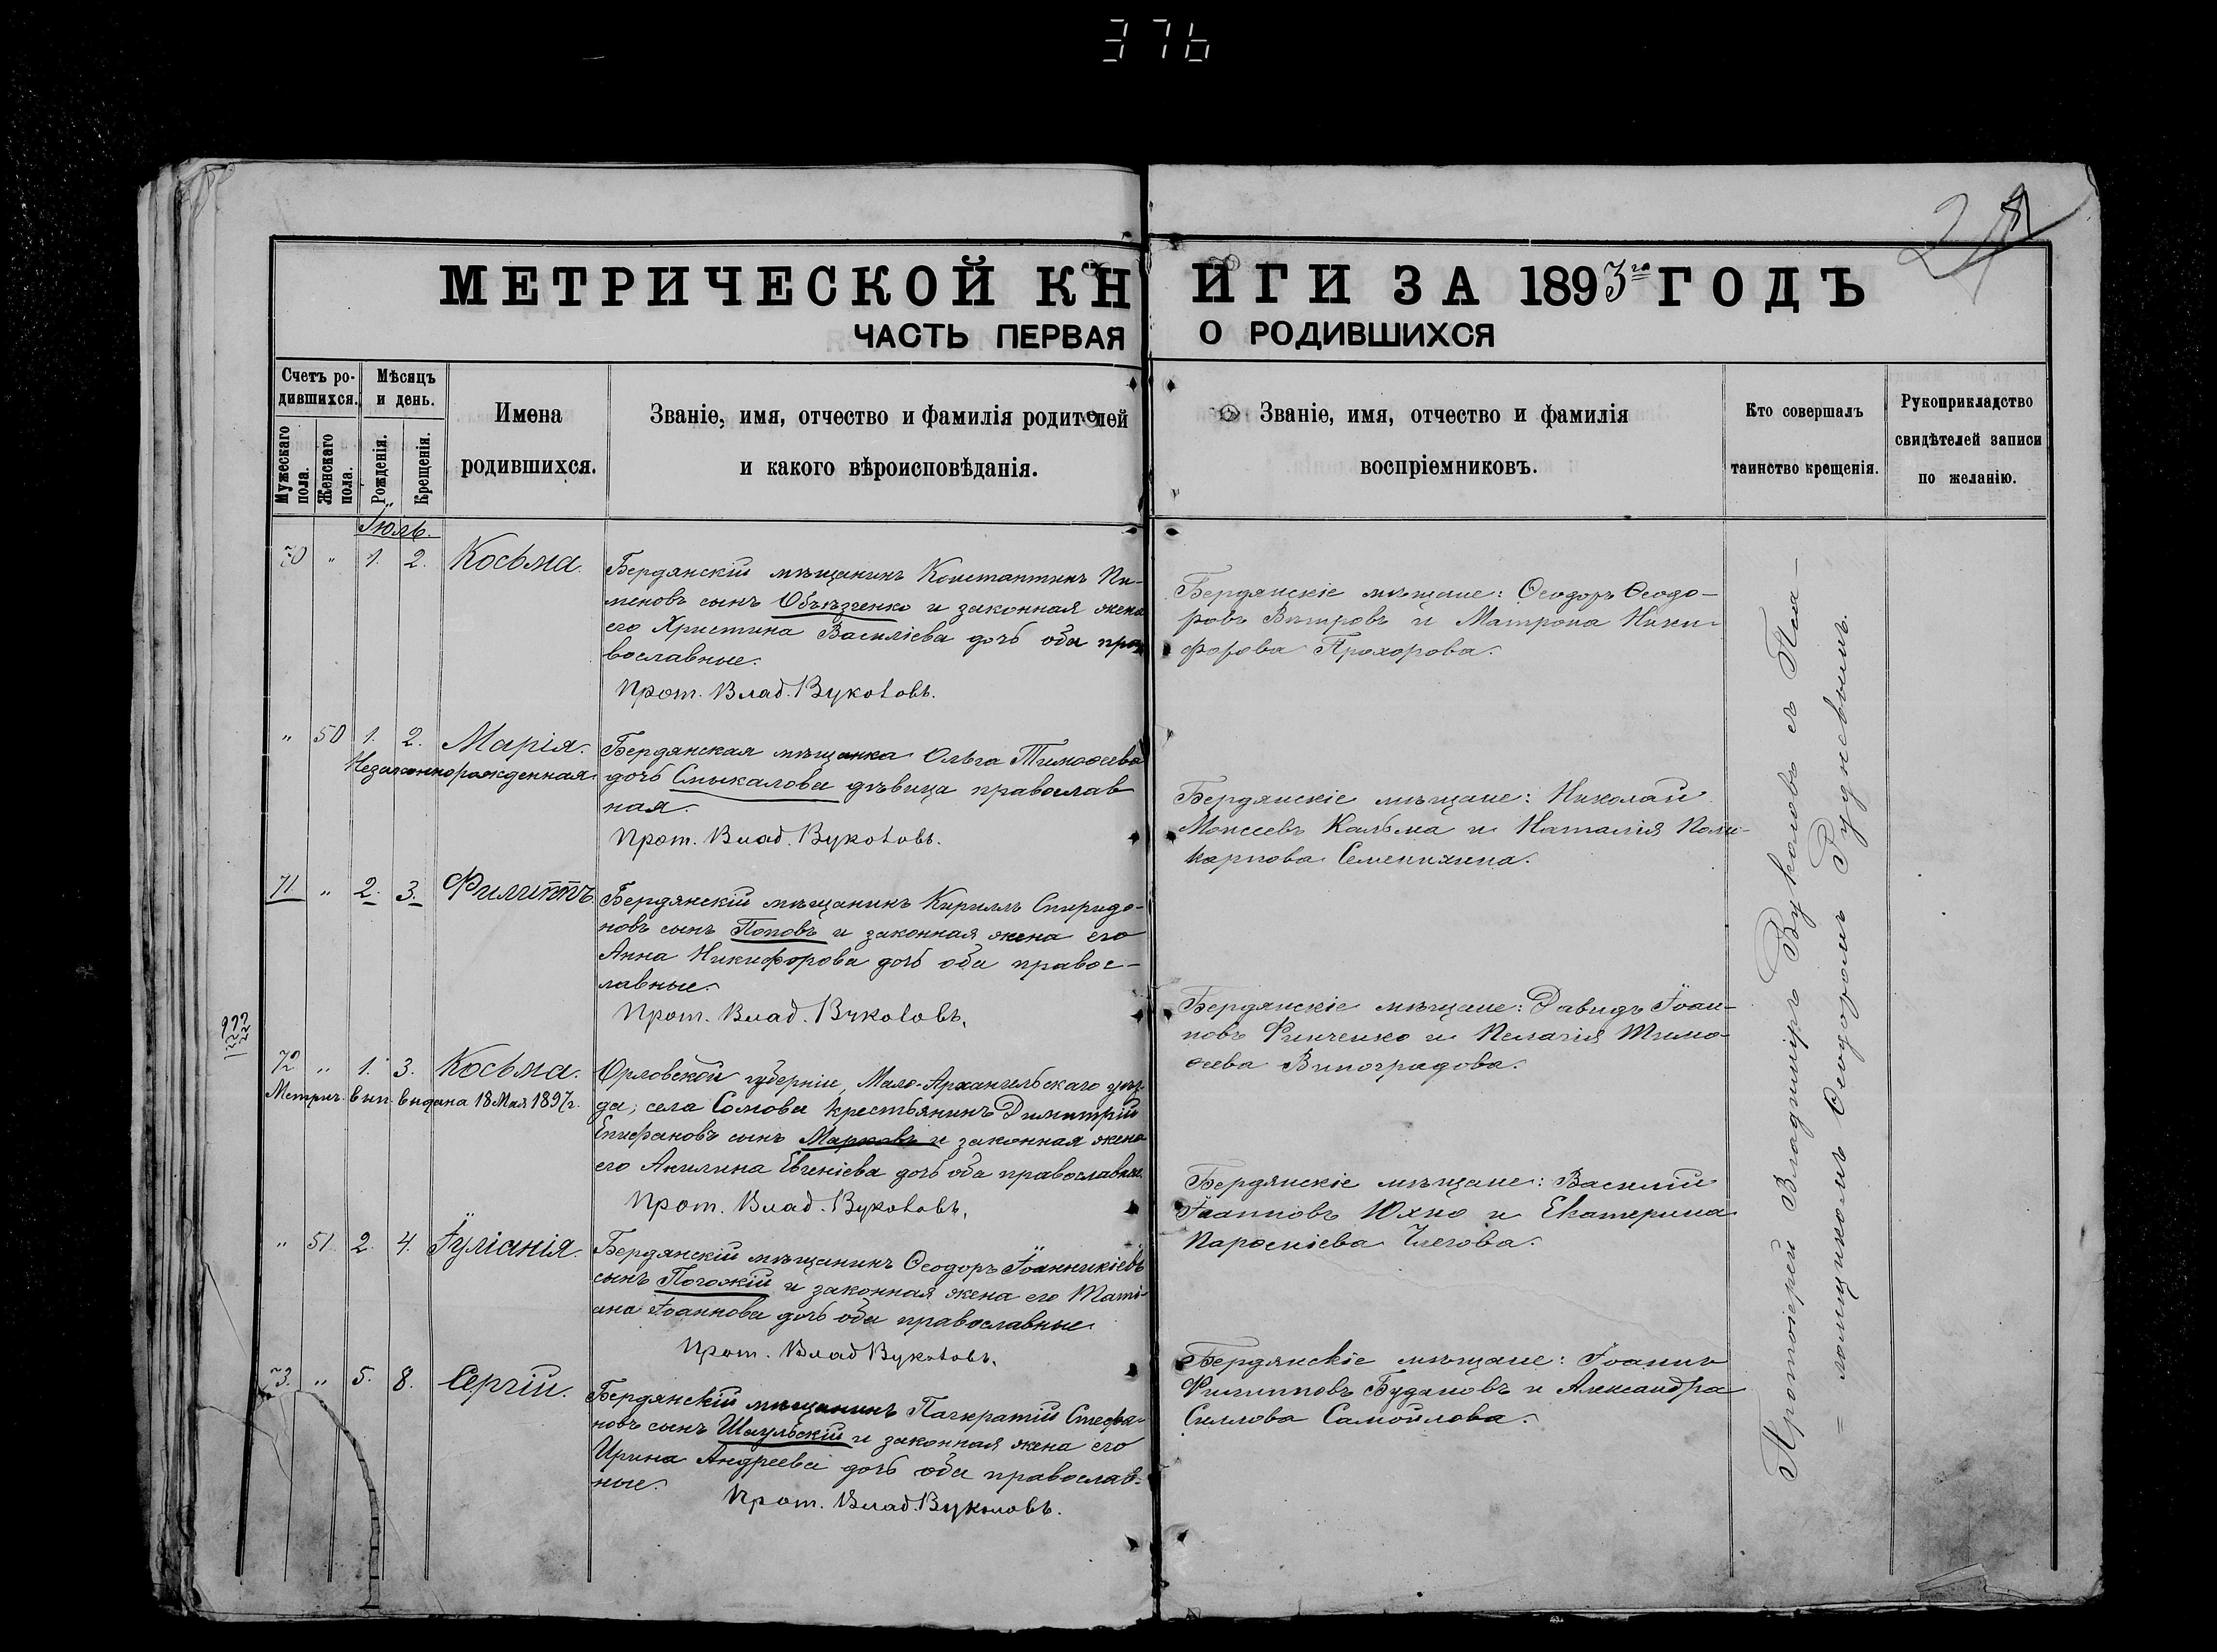 376
МЕТРИЧЕСКОЙ КНИГИ ЗА 1893го ГОДЪ
ЧАСТЬ ПЕРВАЯ О РОДИВШИХСЯ
Счетъ ро-
дившихся.
Мужескаго пола.
Женскаго пола.
Мѣсяцъ
и день.
Рожденія.
Крещенія.
Имена
родившихся.
Званіе, имя, отчество и фамилія родителей
и какого вѣроисповѣданія.
Званіе, имя, отчество и фамилія
воспріемниковъ.
Кто совершалъ
таинство крещенія.
Рукоприкладство
свидѣтелей записи
по желанію.
Іюль.
70 " 1. 2. Косьма.
Бердянскій мѣщанинъ Константинъ Пи-
меновъ сынъ Объѣзченко и законная жена
его Христина Василіева дочь оба пра
вославные.
Прот. Влад. Вуколовъ.
Бердянскіе мѣщане: Ѳеодоръ Ѳеодо-
ровъ Вѣтровъ и Матрона Ники-
форова Прохорова.
" 50 1. 2. Марія.
Незаконнорожденная.
Бердянская мѣщанка Ольга Тимоѳеева
дочь Смыкалова дѣвица православ
ная.
Прот. Влад. Вуколовъ.
Бердянскіе мѣщане: Николай
Моисеевъ Кальма и Наталія Поли-
карпова Семенихина.
71 " 2. 3. Филиппъ.
Бердянскій мѣщанинъ Кириллъ Спиридо-
новъ сынъ Поповъ и законная жена его
Анна Никифорова дочь оба правос-
лавные.
Прот. Влад. Вуколовъ.
Бердянскіе мѣщане: Давидъ Іоан-
новъ Финченко и Пелагія Тимо-
ѳеева Виноградова.
72 " 1. 3. Косьма.
Метрич. вып. выдана 18 Мая 1897 г.
Орловской губерніи, Мало-Архангельскаго уѣз-
да, села Сомова крестьянинъ Димитрій
Епифановъ сынъ Марковъ и законная жена
его Акилина Евгеніева дочь оба православные.
Прот. Влад. Вуколовъ.
Бердянскіе мѣщане: Василій
Іоанновъ Юхно и Екатерина
" 51. 2. 4. Іуліанія.
Бердянскій мѣщанинъ Ѳеодоръ Іоанникіевъ
сынъ Погожій и законная жена его Тати-
ана Іоаннова дочь оба православные.
Прот. Влад Вуколовъ.
Бердянскіе мѣщане: Іоаннъ
Филипповъ Будановъ и Александра
Силлова Самойлова.
73. " 5. 8. Сергій.
Бердянскій мѣщанинъ Панкратій Стефа-
новъ сынъ Шаульскій и законная жена его
Ирина Андреева дочь оба православ-
ные.
Прот. Влад. Вуколовъ.
Протоіерей Владиміръ Вуколовъ съ Пса-
= ломщикомъ Ѳеодоромъ Рудневымъ.